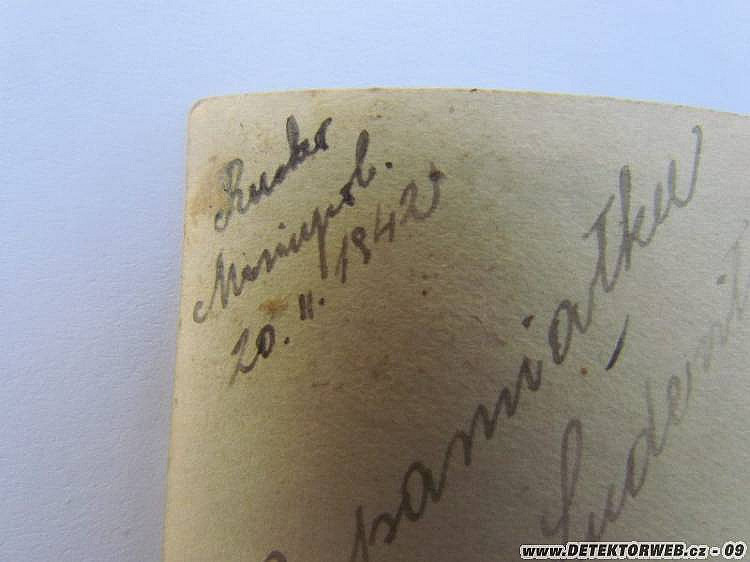 Rusko
Mariupol.
20. II. 1942
pamiatku
www.DETEKTORWEB.cz - 09